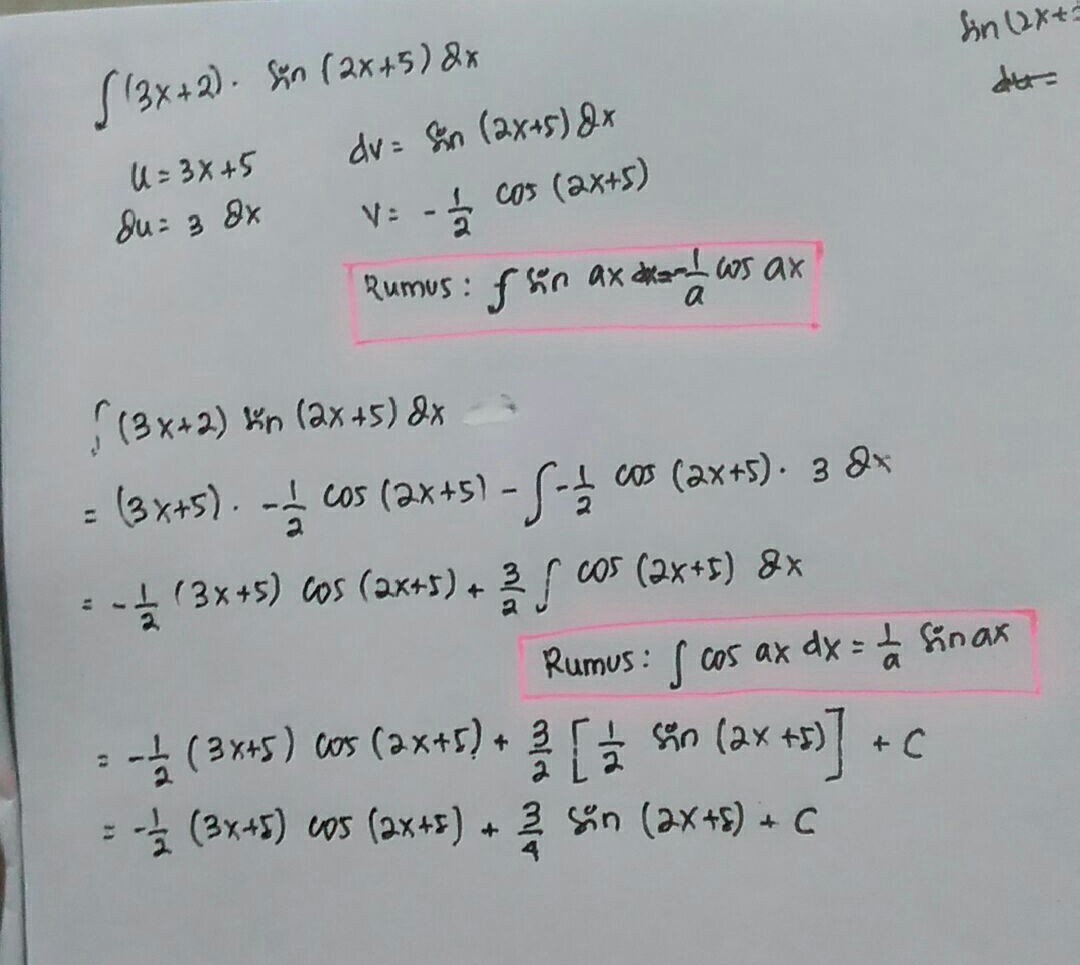 ∫(3x+2). sin (2x+5) dx
sin (2x+
du =
u = 3x+5 dv = sin (2x+5) dx
du = 3 dx v = -1/2 cos (2x+5)
Rumus : ∫ sin ax dx = -1/a cos ax
∫(3x+2) sin (2x+5) dx
= (3x+5). -1/2 cos (2x+5) - ∫-1/2 cos (2x+5). 3 dx
= -1/2 (3x+5) cos (2x+5) + 3/2 ∫ cos (2x+5) dx
Rumus : ∫ cos ax dx = 1/a sin ax
= -1/2 (3x+5) cos (2x+5) + 3/2 [1/2 sin (2x+5)] + C
= -1/2 (3x+5) cos (2x+5) + 3/4 sin (2x+5) + C